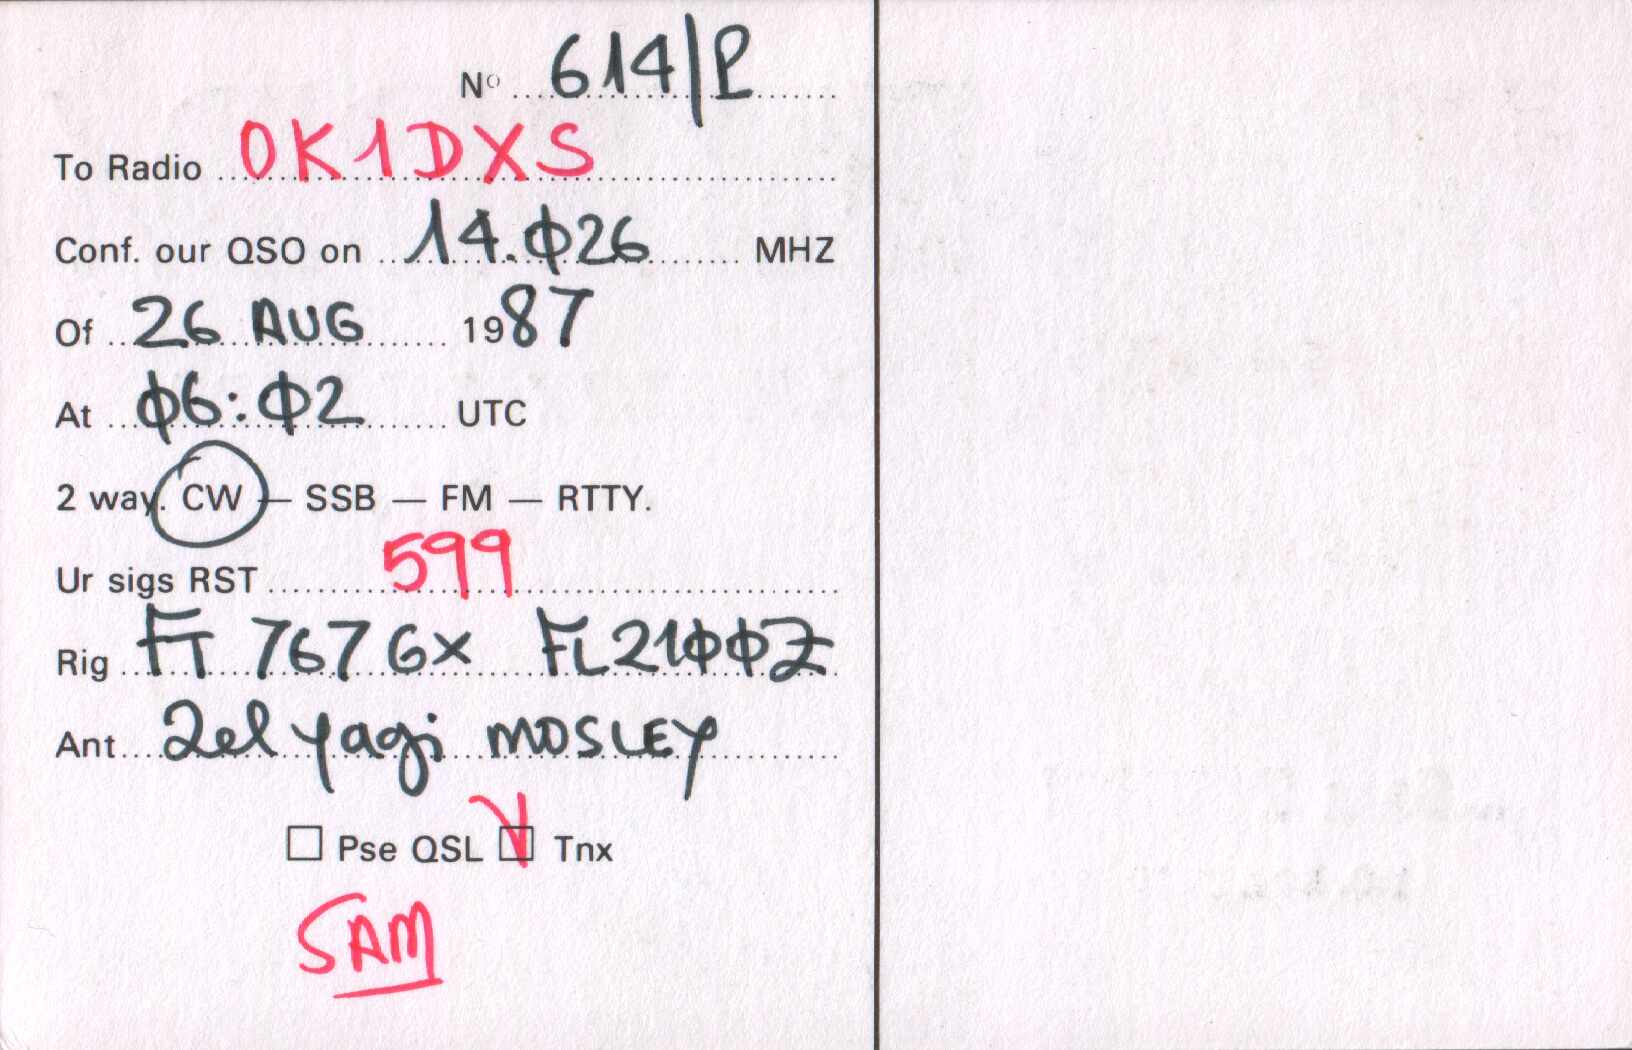 Nº 614/P
To Radio OK1DXS
Conf. our QSO on 14.φ26 MHZ
Of 26 AUG 1987
At φ6:φ2 UTC
2 way. CW — SSB — FM — RTTY.
Ur sigs RST 599
Rig FT 767 GX FL21φφZ
Ant 2el yagi MOSLEY
Pse QSL Tnx
SAM